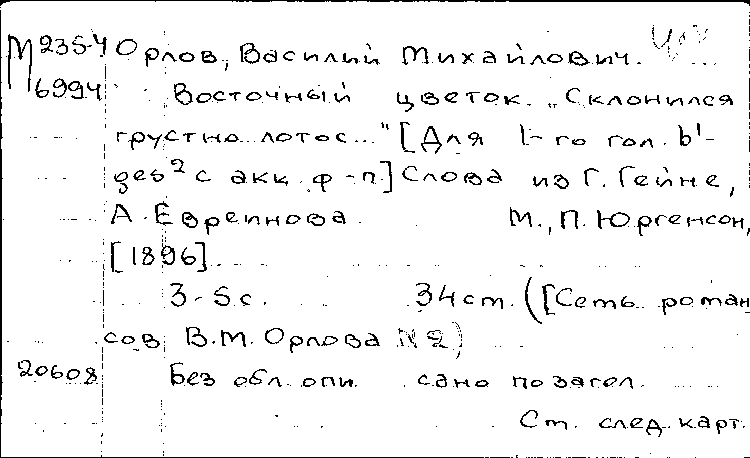 М 235-4 Орлов, Василий Михайлович.
6994 Восточный цветок. „Склонился
грустно лотос..." [Для 1-го гол. b¹-
des² с акк. ф-п.] Слова из Г. Гейне,
А. Евреинова. М., П. Юргенсон,
[1896].
3-5 с. 34 ст. ([Семь роман
сов В.М. Орлова № 2)
20608 Без обл. опи сано по загол.
См. след. карт.